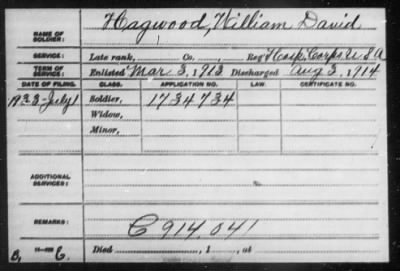 NAME OF SOLDIER: Hagwood, William David
SERVICE: Late rank, Co. Reg't Hosp. Corps, U S A
TERM OF SERVICE: Enlisted Mar 3, 1913 Discharged Aug 3, 1914
DATE OF FILING. CLASS. APPLICATION NO. LAW. CERTIFICATE NO.
1933-July 1 Soldier, 1734734
Widow,
Minor,
ADDITIONAL SERVICES:
REMARKS: C 914 041
Died , 1 , at